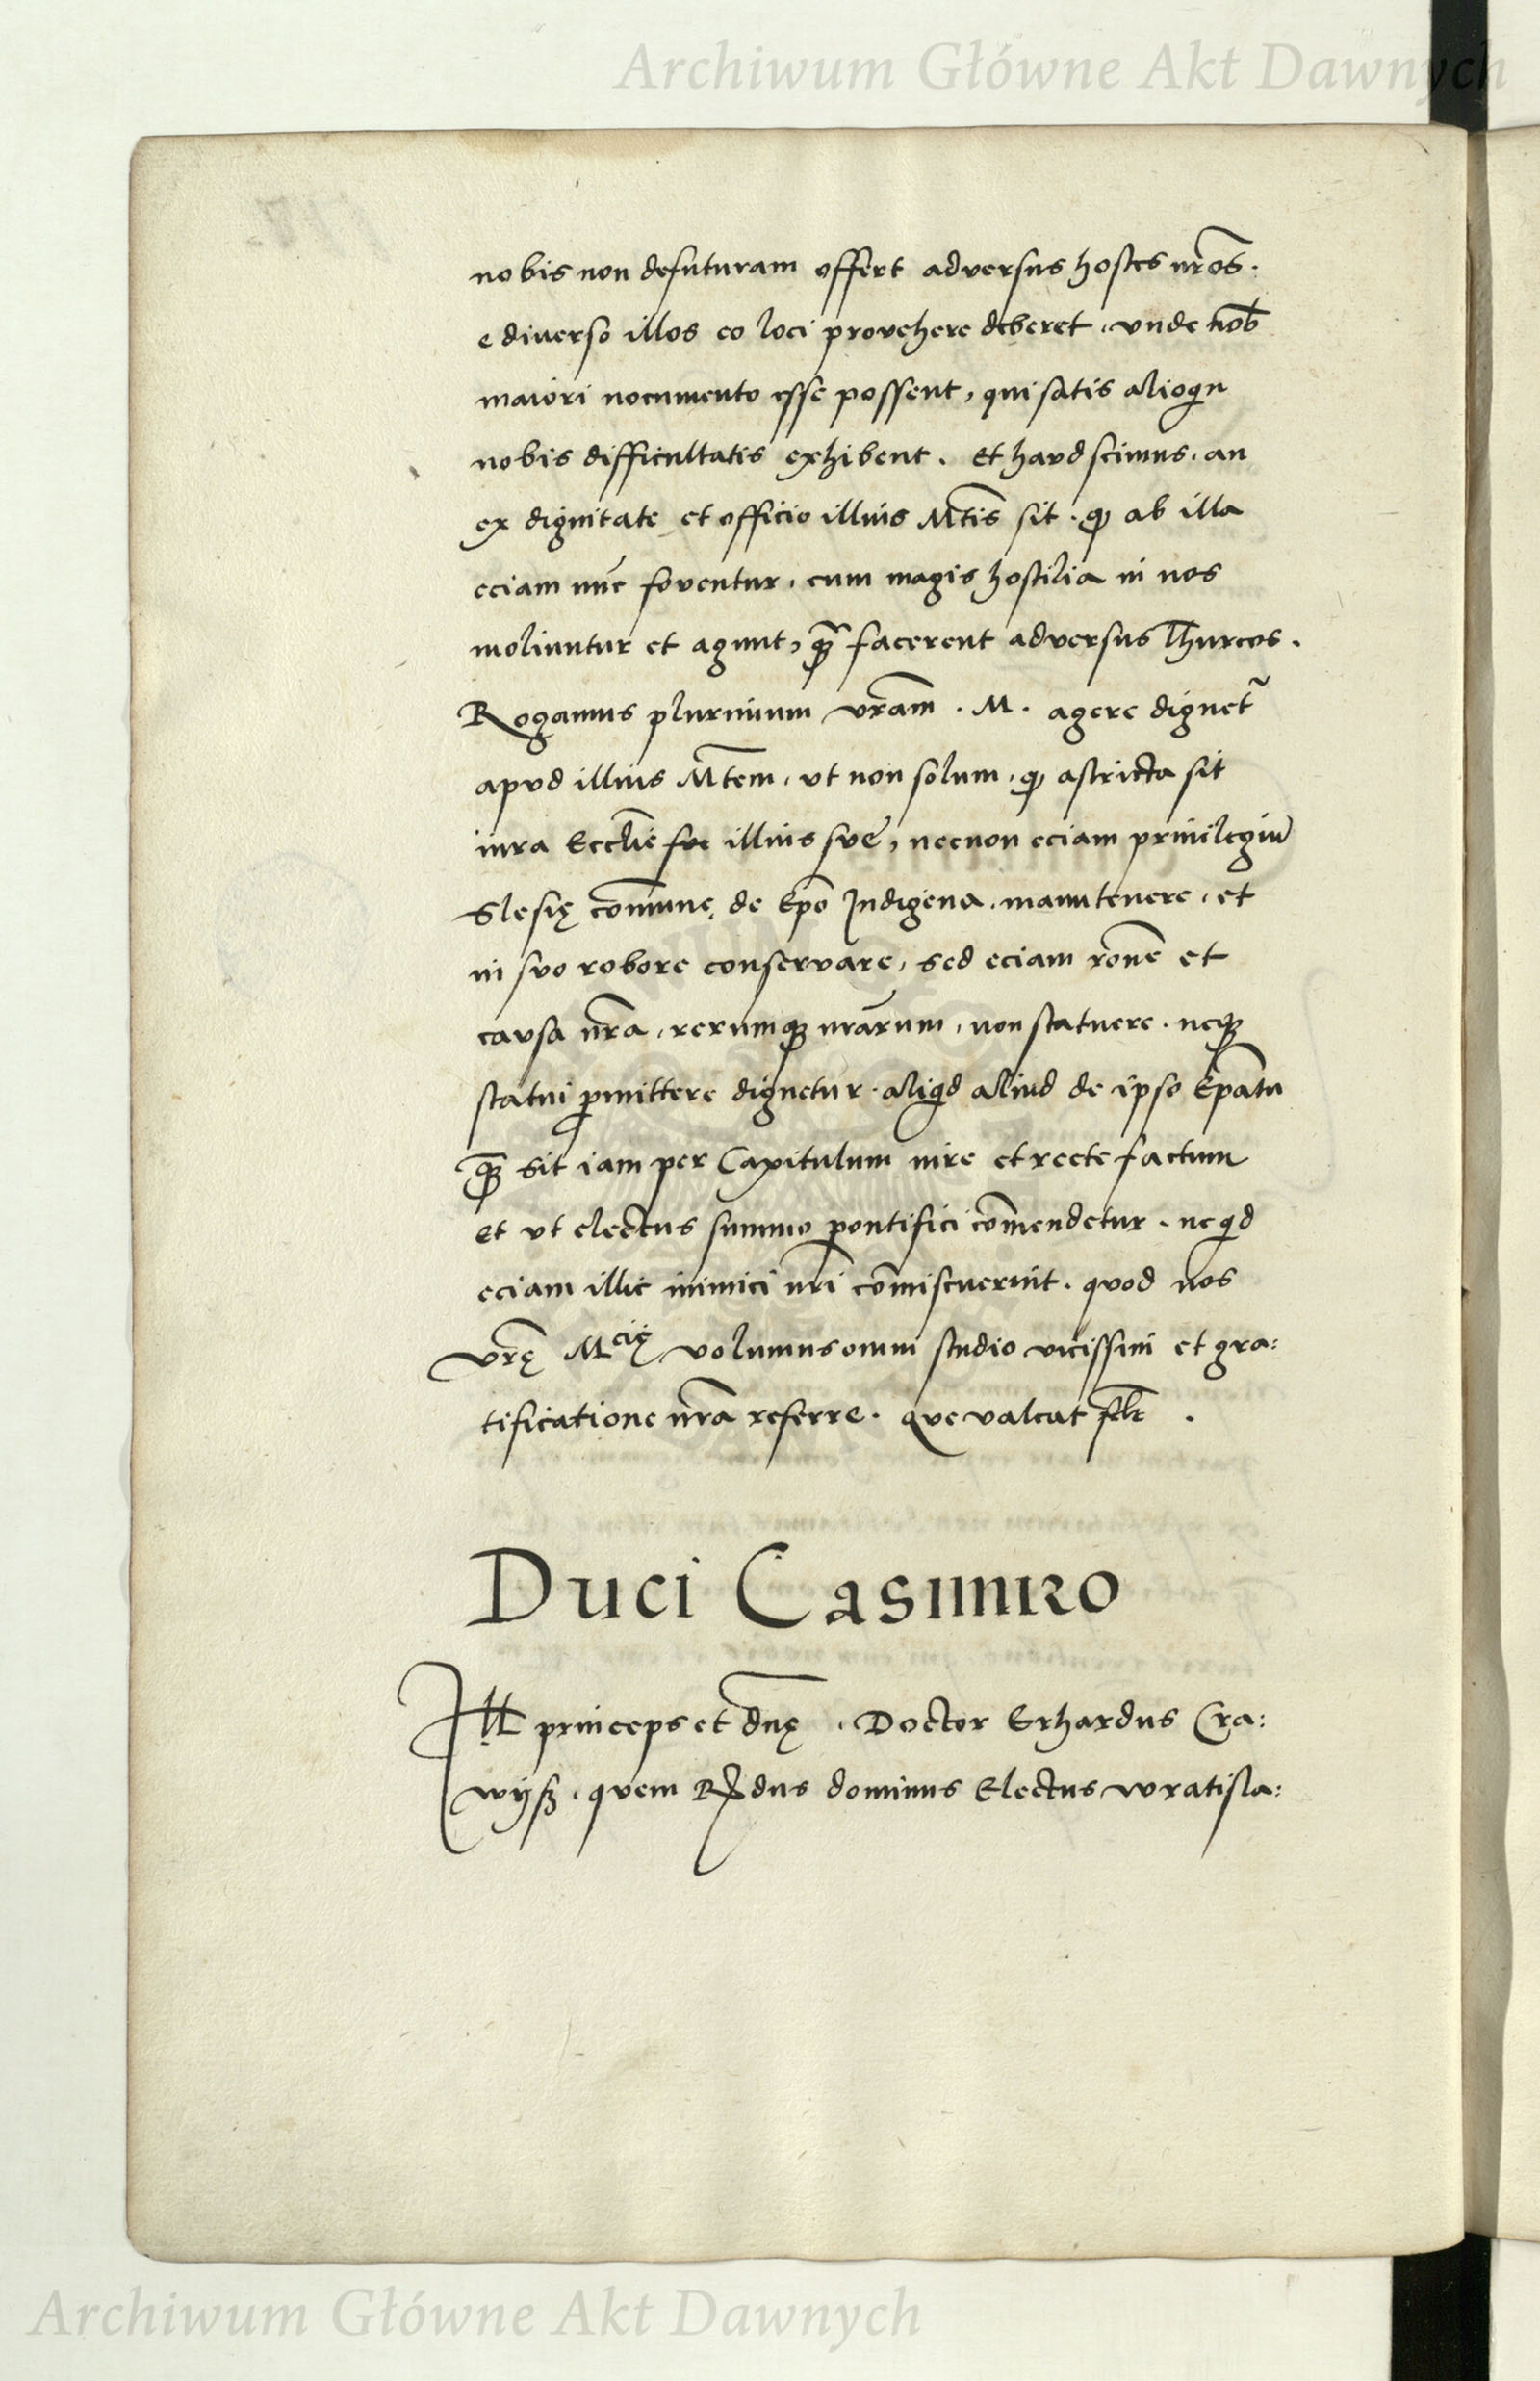 Archiwum Główne Akt Dawnych
nobis non defuturam offert adversus hostes nr̃os.
e diuerso illos eo loci provehere deberet, vnde nob̃
maiori nocumento esse possent, qui satis alioqn
nobis difficultatis exhibent. Et haud scimus, an
ex dignitate et officio illius Mt̃is sit, ꝙ ab illa
eciam nũc foventur, cum magis hostilia in nos
moliuntur et agunt, qꝫ̃ facerent adversus Thurcos.
Rogamus plurimum vr̃am. M. agere dignet̃
apud illius Mt̃em, vt non solum, ꝙ astricta sit
iura Eccl̃ie sue illius sue, necnon eciam priuilegiũ
Slesię com̃une, de Ep̃o Indigena, manutenere, et
in suo robore conservare, sed eciam ror̃ne et
causa nr̃a, rerumqꝫ nr̃arum, non statuere, neqꝫ
statui ꝑmittere dignetur, aliqd aliud de ipso Ep̃atu
qꝫ̃ sit iam per Capitulum iure et recte factum
et vt electus summo pontifici com̃endetur, ne qd
eciam illic inimici nr̃i com̃iscuerint, quod nos
vr̃ę Mcię volumus omni studio vicissim et gra:
tificatione nr̃a referre. que valeat fel̃r.
Duci Casimiro
Ill princeps et dn̄ę. Doctor Erhardus Cra:
wyß, quem R̃dus dominus Electus wratisla:
Archiwum Główne Akt Dawnych